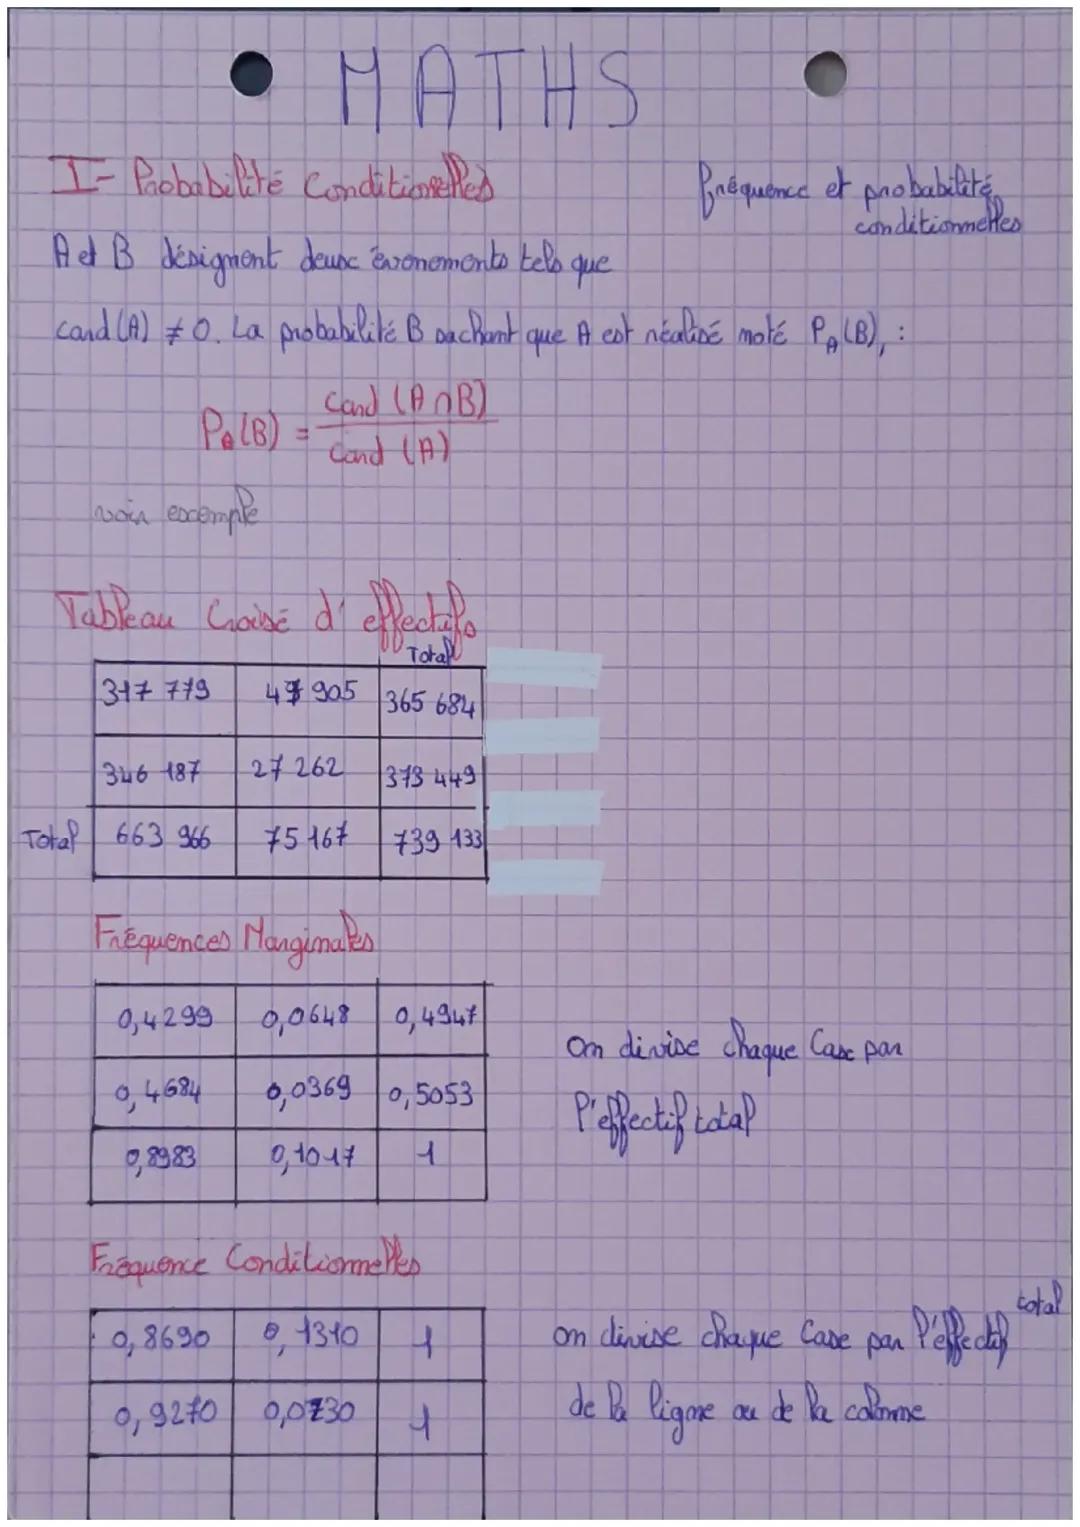 MATHS
I- Probabilité Conditionnelles
fréquence et probabilité
conditionnelles
A et B désignent deux évenements tels que
card (A) ≠ 0. La probabilité B sachant que A est réalisé noté P_A(B), :
P_A(B) = Card (A∩B) / Card (A)
voir exemple
Tableau Croisé d'effectifs
Total
317 779 47 905 365 684
346 187 27 262 373 449
Total 663 966 75 167 739 133
Fréquences Marginales
0,4299 0,0648 0,4947
On divise chaque Case par
0,4684 0,0369 0,5053
l'effectif total
0,8983 0,1017 1
Fréquence Conditionnelles
0,8690 0,1310 1
on divise chaque Case par l'effectif total
0,9270 0,0730 1
de la ligne ou de la colonne